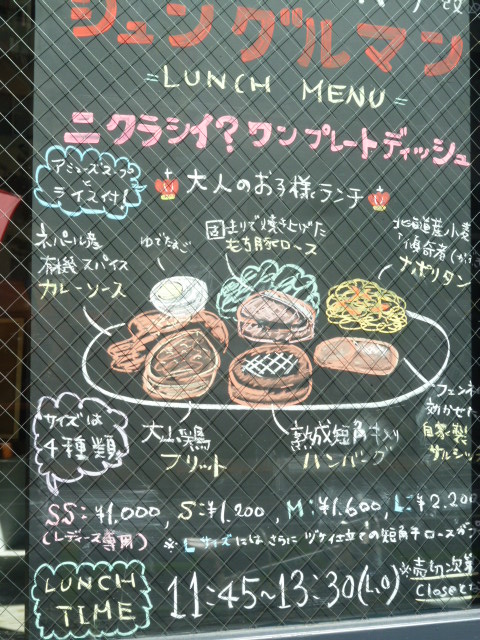 シュングルマン
=LUNCH MENU=
ニクラシイ?ワンプレートディッシュ
アミューズ・スープ
と
ライス付!
大人のお子様ランチ
ネパール産
有機スパイス
カレーソース
ゆでたまご
固まりで焼き上げた
もち豚ロース
北海道産小麦
ナポリタン
サイズは
4種類
大山鶏
フリット
熟成短角牛入り
ハンバーグ
フェンネ
効かせた
自家製
サルシッ
SS:¥1.000, S:¥1.200, M:¥1.600, L:¥2.200
(レディース専用)
※Lサイズにはさらにヅケイ仕立ての短角牛ロースが
LUNCH
TIME
11:45~13:30(L.O)
※売切次第
Closeと